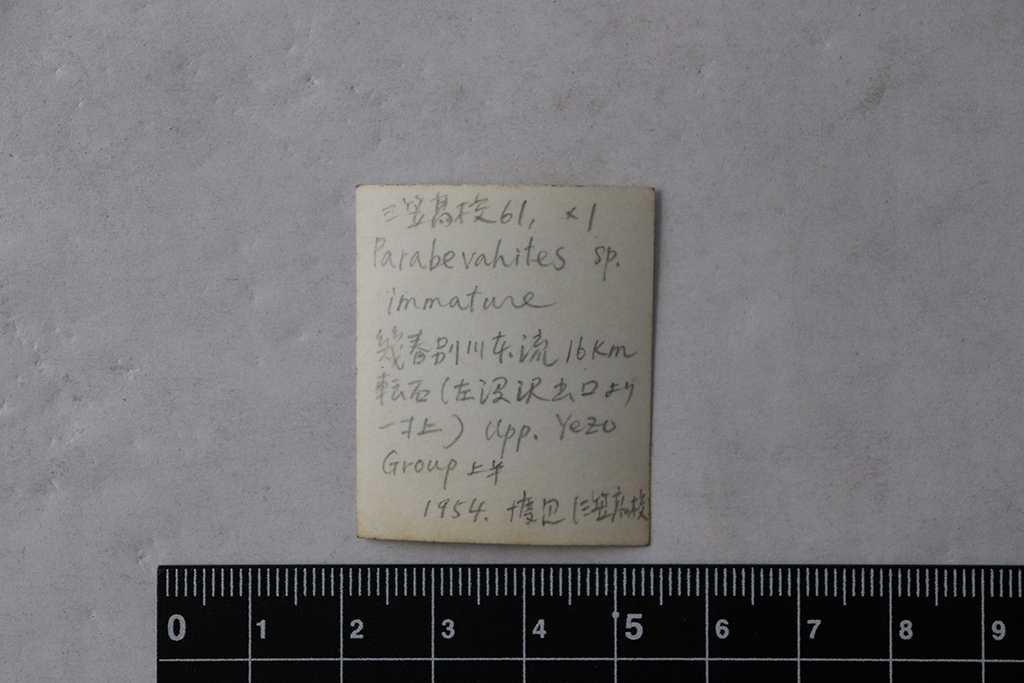 三笠高校61, ×1
Parabevahites sp.
immature
幾春別川本流16Km
転石(左沢出口より
一寸上) Upp. Yezo
Group 上半
1954. (三笠高校
0 1 2 3 4 5 6 7 8 9